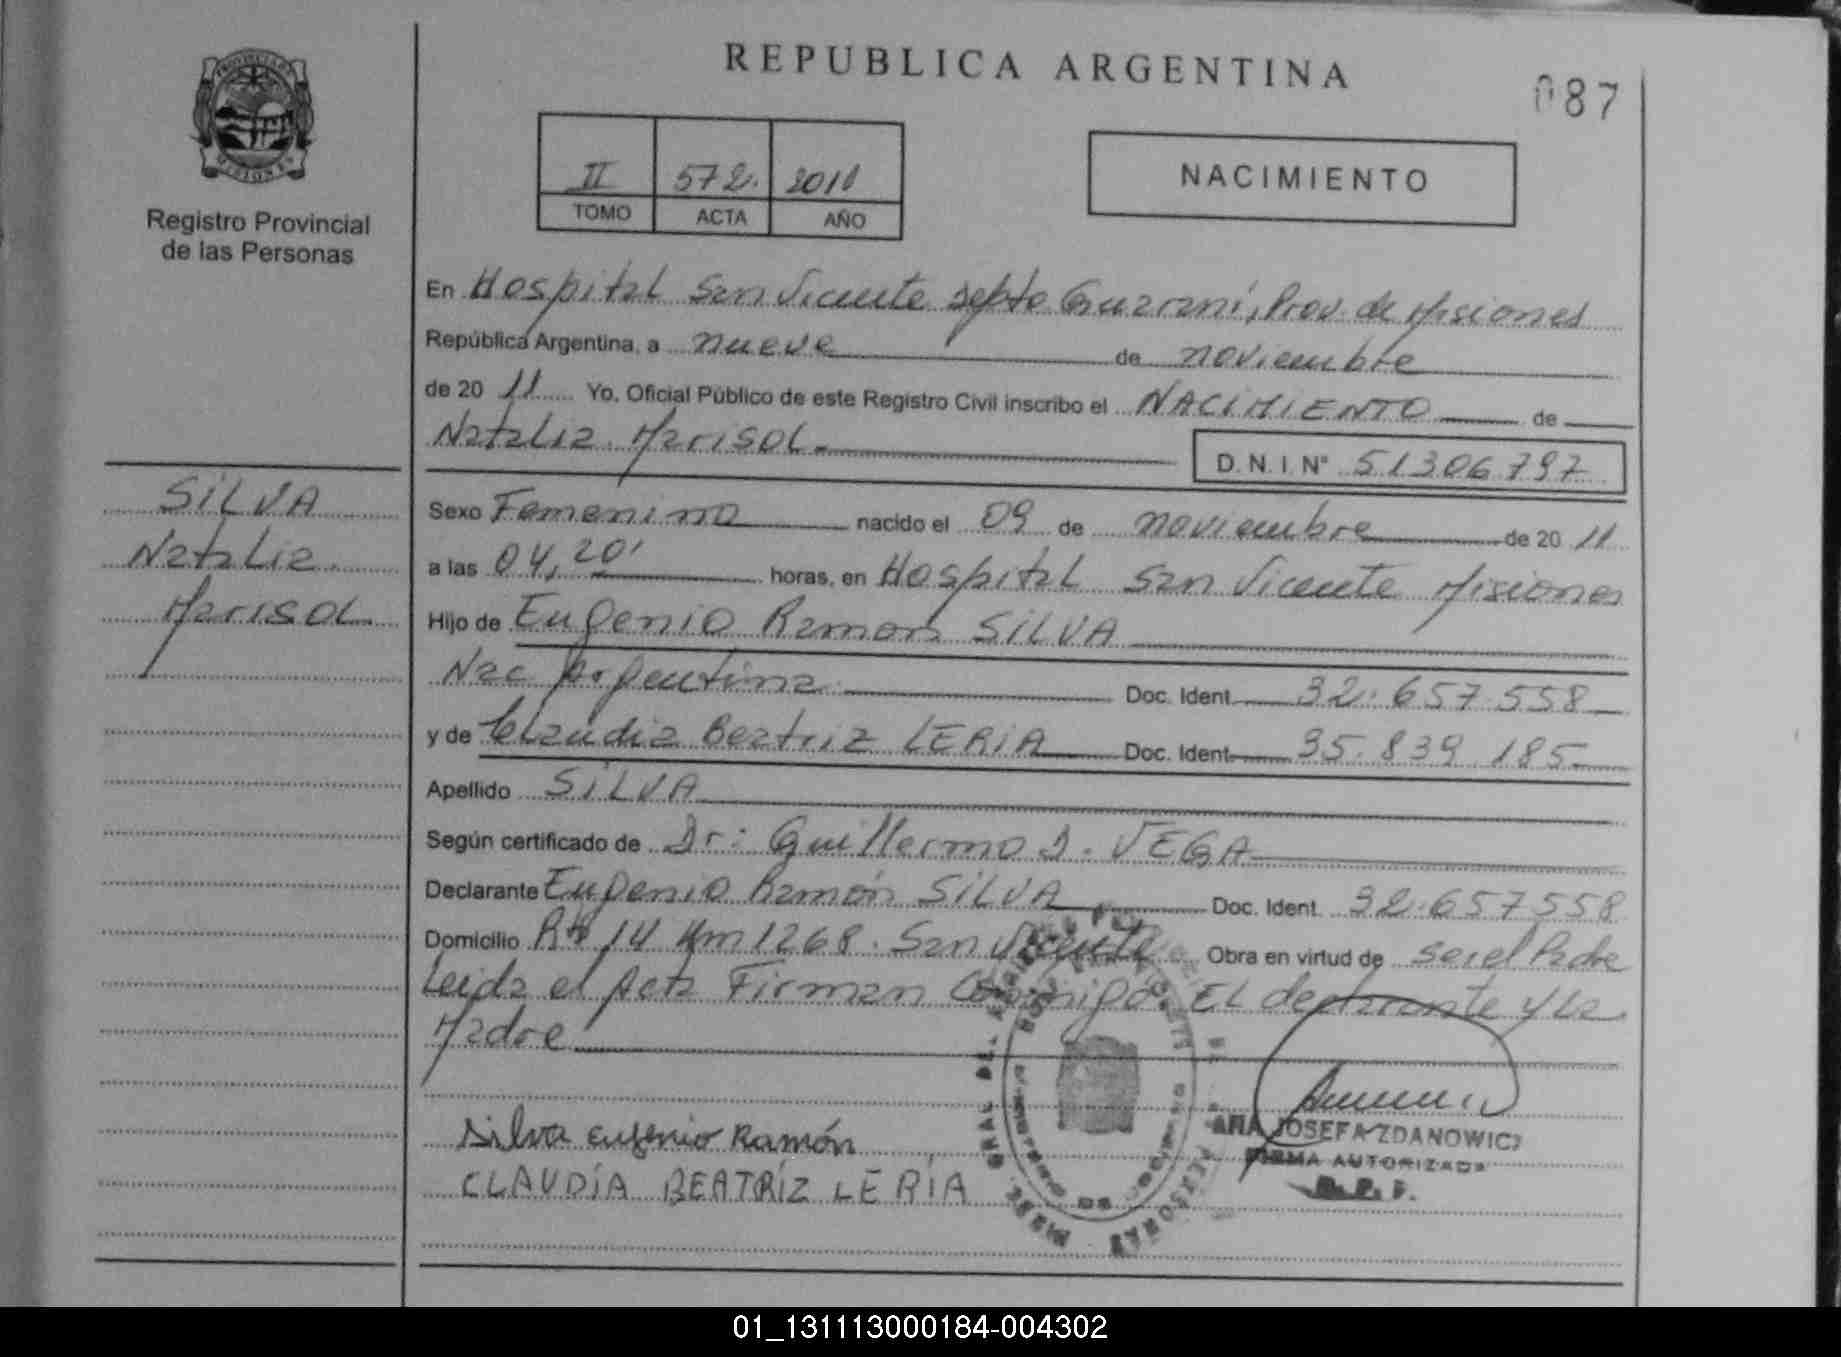 REPUBLICA ARGENTINA
087
PROVINCIA DE MISIONES
Registro Provincial
de las Personas
II 572. 2011
TOMO ACTA AÑO
NACIMIENTO
En Hospital San Vicente Depto Guaraní, Prov. de Misiones
República Argentina, a nueve de noviembre
de 20 11 Yo, Oficial Público de este Registro Civil inscribo el NACIMIENTO de
Natalia Marisol
D.N.I. N° 51306797
SILVA
Natalia
Marisol
Sexo Femenino nacido el 09 de noviembre de 20 11
a las 04,20' horas, en Hospital San Vicente Misiones
Hijo de Eugenio Ramon SILVA
Nac Argentina Doc. Ident. 32.657.558
y de Claudia Beatriz LERIA Doc. Ident. 35.839.185
Apellido SILVA
Según certificado de Dr: Guillermo D. VEGA
Declarante Eugenio Ramón SILVA Doc. Ident. 32.657558
Domicilio Rta 14 Km 1268. San Vicente Obra en virtud de ser el Padre
Leida el Acta Firman Conmigo EL declarante y La
Madre
Silva Eugenio Ramón
CLAUDÍA BEATRÍZ LERÍA
JOSEFA ZDANOWICZ
FIRMA AUTORIZADA
01_131113000184-004302